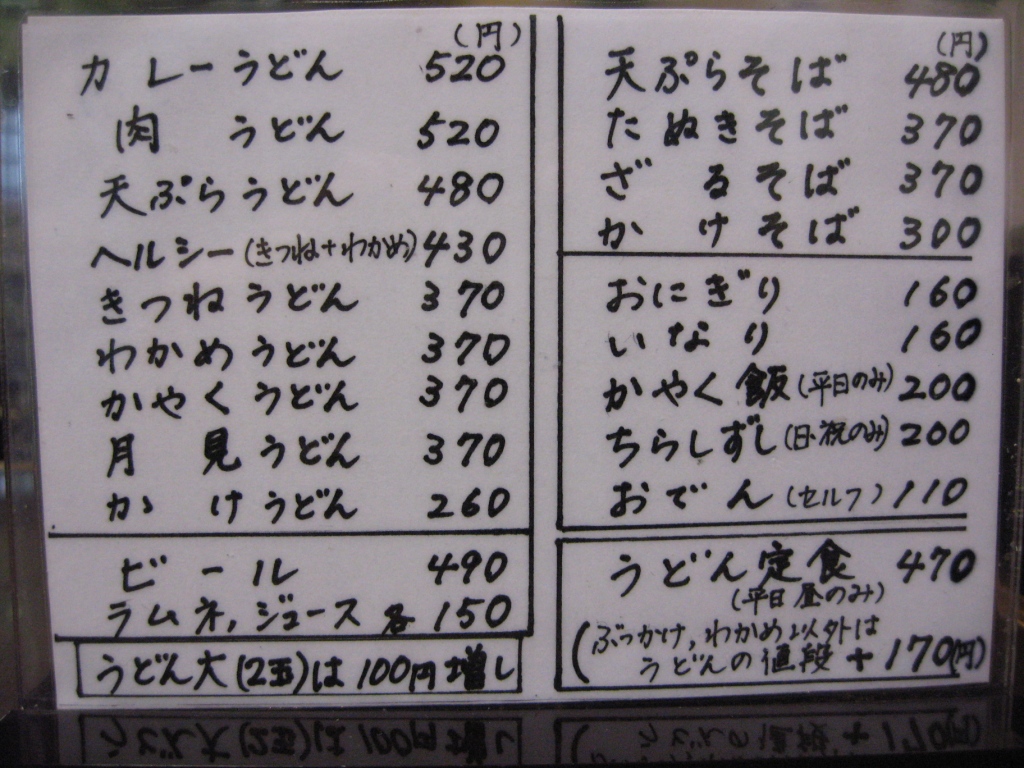 (円)
カレーうどん 520
肉 うどん 520
天ぷらうどん 480
ヘルシー(きつね+わかめ) 430
きつねうどん 370
わかめうどん 370
かやくうどん 370
月 見うどん 370
かけうどん 260
ビール 490
ラムネ,ジュース 各150
うどん大(2玉)は100円増し
(円)
天ぷらそば 480
たぬきそば 370
ざるそば 370
かけそば 300
おにぎり 160
いなり 160
かやく飯(平日のみ) 200
ちらしずし(日・祝のみ) 200
おでん(セルフ) 110
うどん定食 470
(平日昼のみ)
(ぶっかけ,わかめ以外は
うどんの値段+170(円)